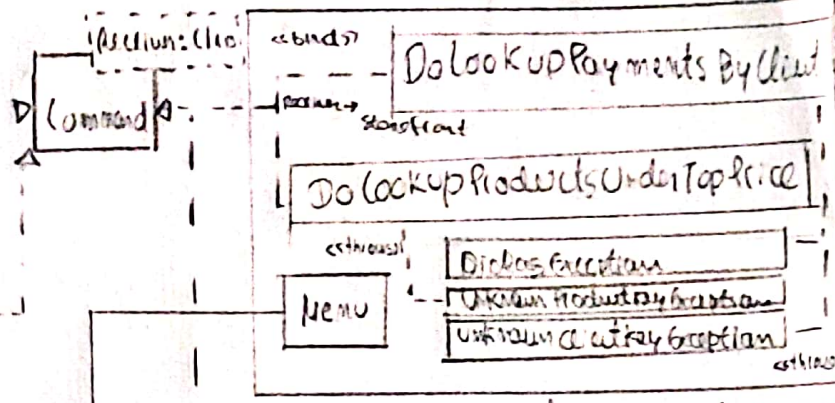 <<bind>>
DoLookupPaymentsByClient
Command
receiver→
Storefront
DoLookupProductsUnderTopPrice
<<throws>>
Menu
UnknownProductKeyException
UnknownClientKeyException
<<throws